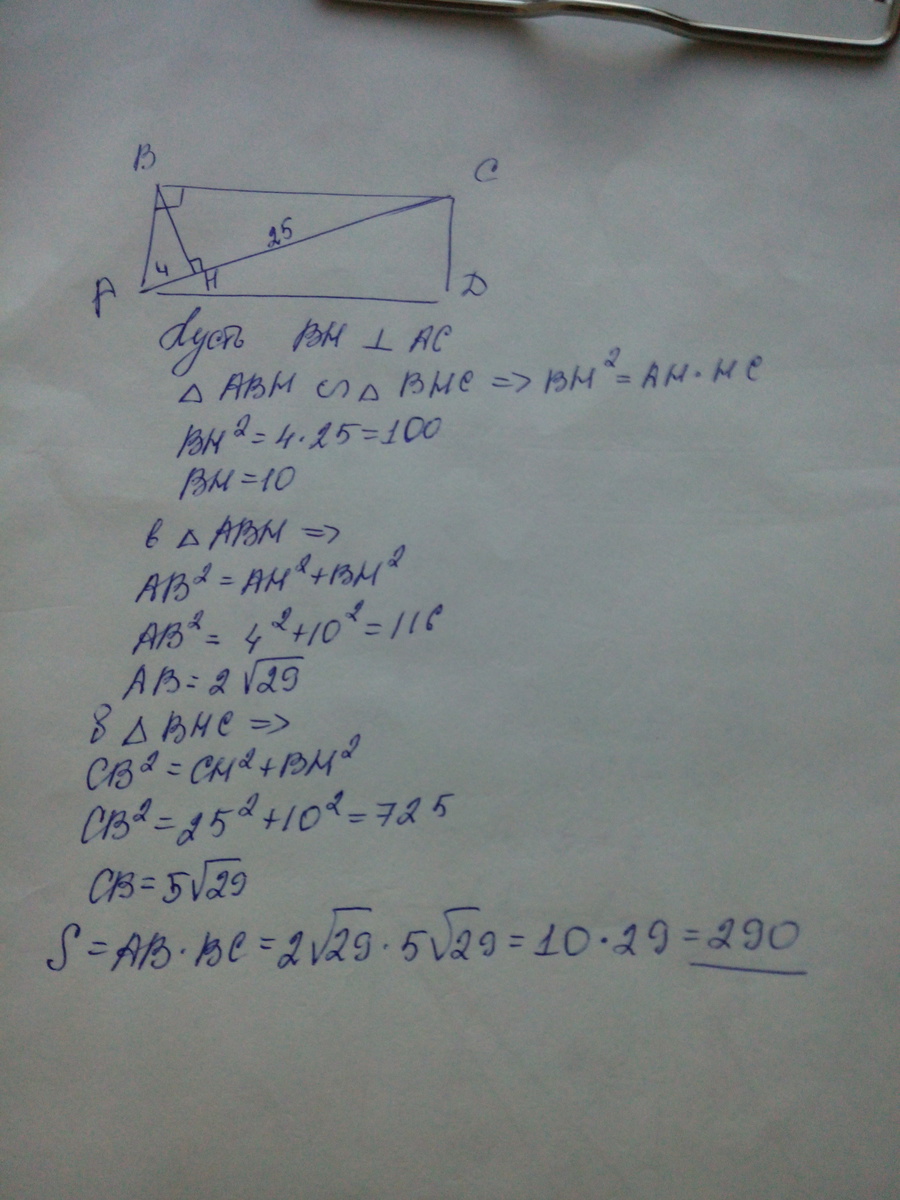 B
C
25
4
H
A
D
Пусть BH ⊥ AC
△ ABH ∽ △ BHC => BH² = AH · HC
BH² = 4 · 25 = 100
BH = 10
в △ ABH =>
AB² = AH² + BH²
AB² = 4² + 10² = 116
AB = 2√29
в △ BHC =>
CB² = CH² + BH²
CB² = 25² + 10² = 725
CB = 5√29
S = AB · BC = 2√29 · 5√29 = 10 · 29 = 290